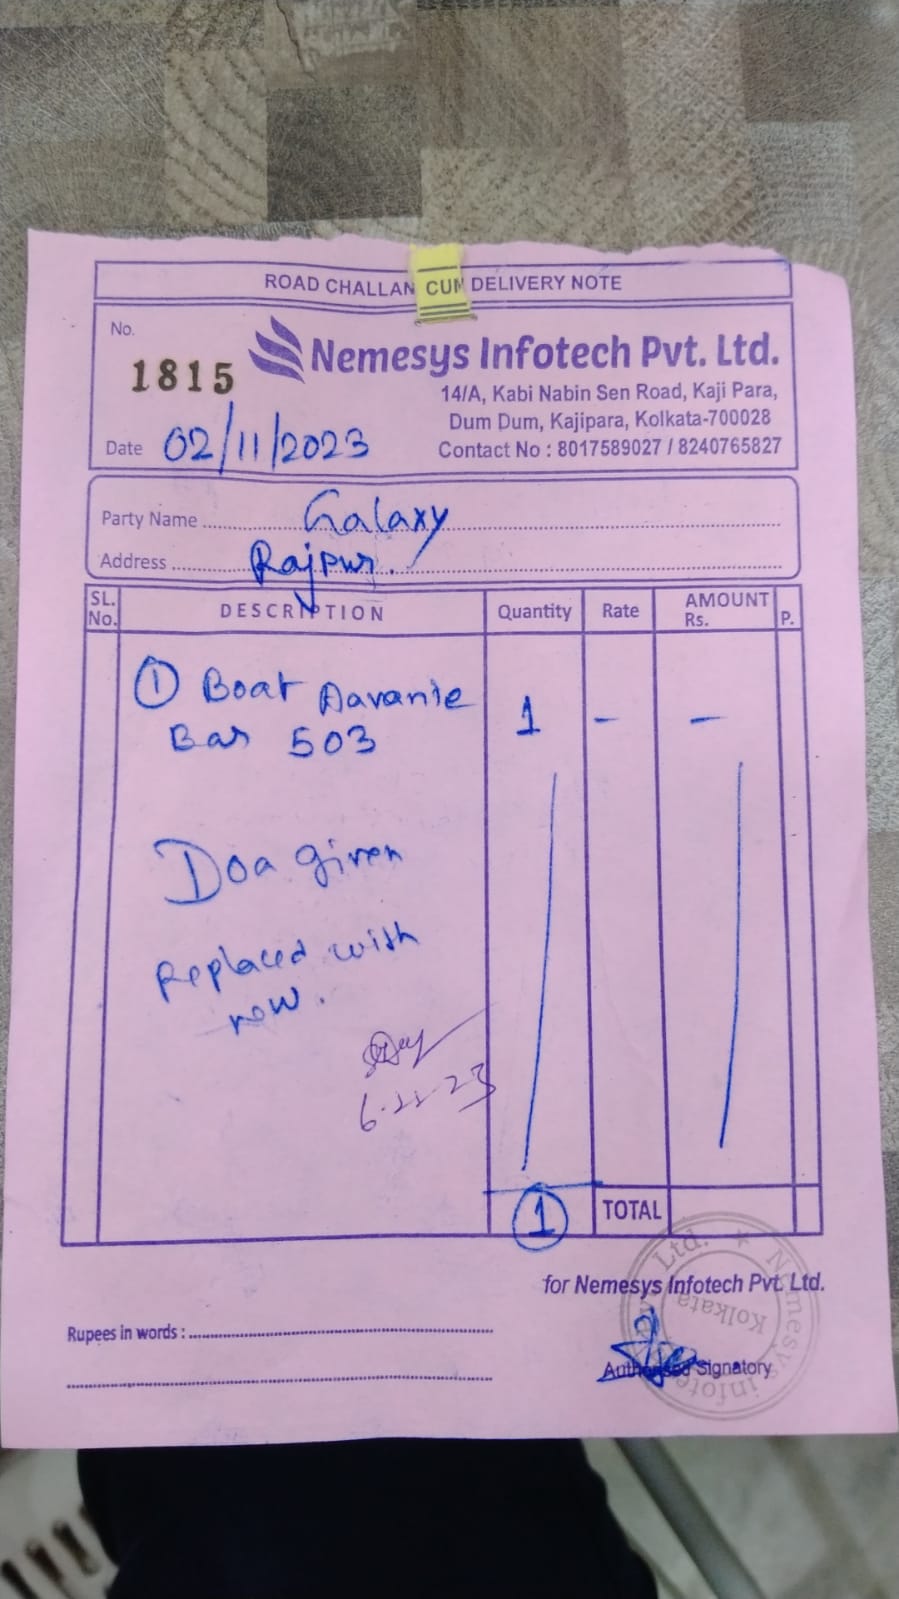 ROAD CHALLAN CUM DELIVERY NOTE
No.
1815
Nemesys Infotech Pvt. Ltd.
14/A, Kabi Nabin Sen Road, Kaji Para,
Dum Dum, Kajipara, Kolkata-700028
Date 02/11/2023
Contact No : 8017589027 / 8240765827
Party Name Galaxy
Address Rajpur.
SL. No. DESCRIPTION Quantity Rate AMOUNT Rs. P.
① Boat Aavante 1 - -
Bar 503
Doa given
Replaced with
new.
6.11.23
1 TOTAL
for Nemesys Infotech Pvt. Ltd.
Rupees in words :
Authorised Signatory
Nemesys Infotech Pvt. Ltd. ★
Kolkata